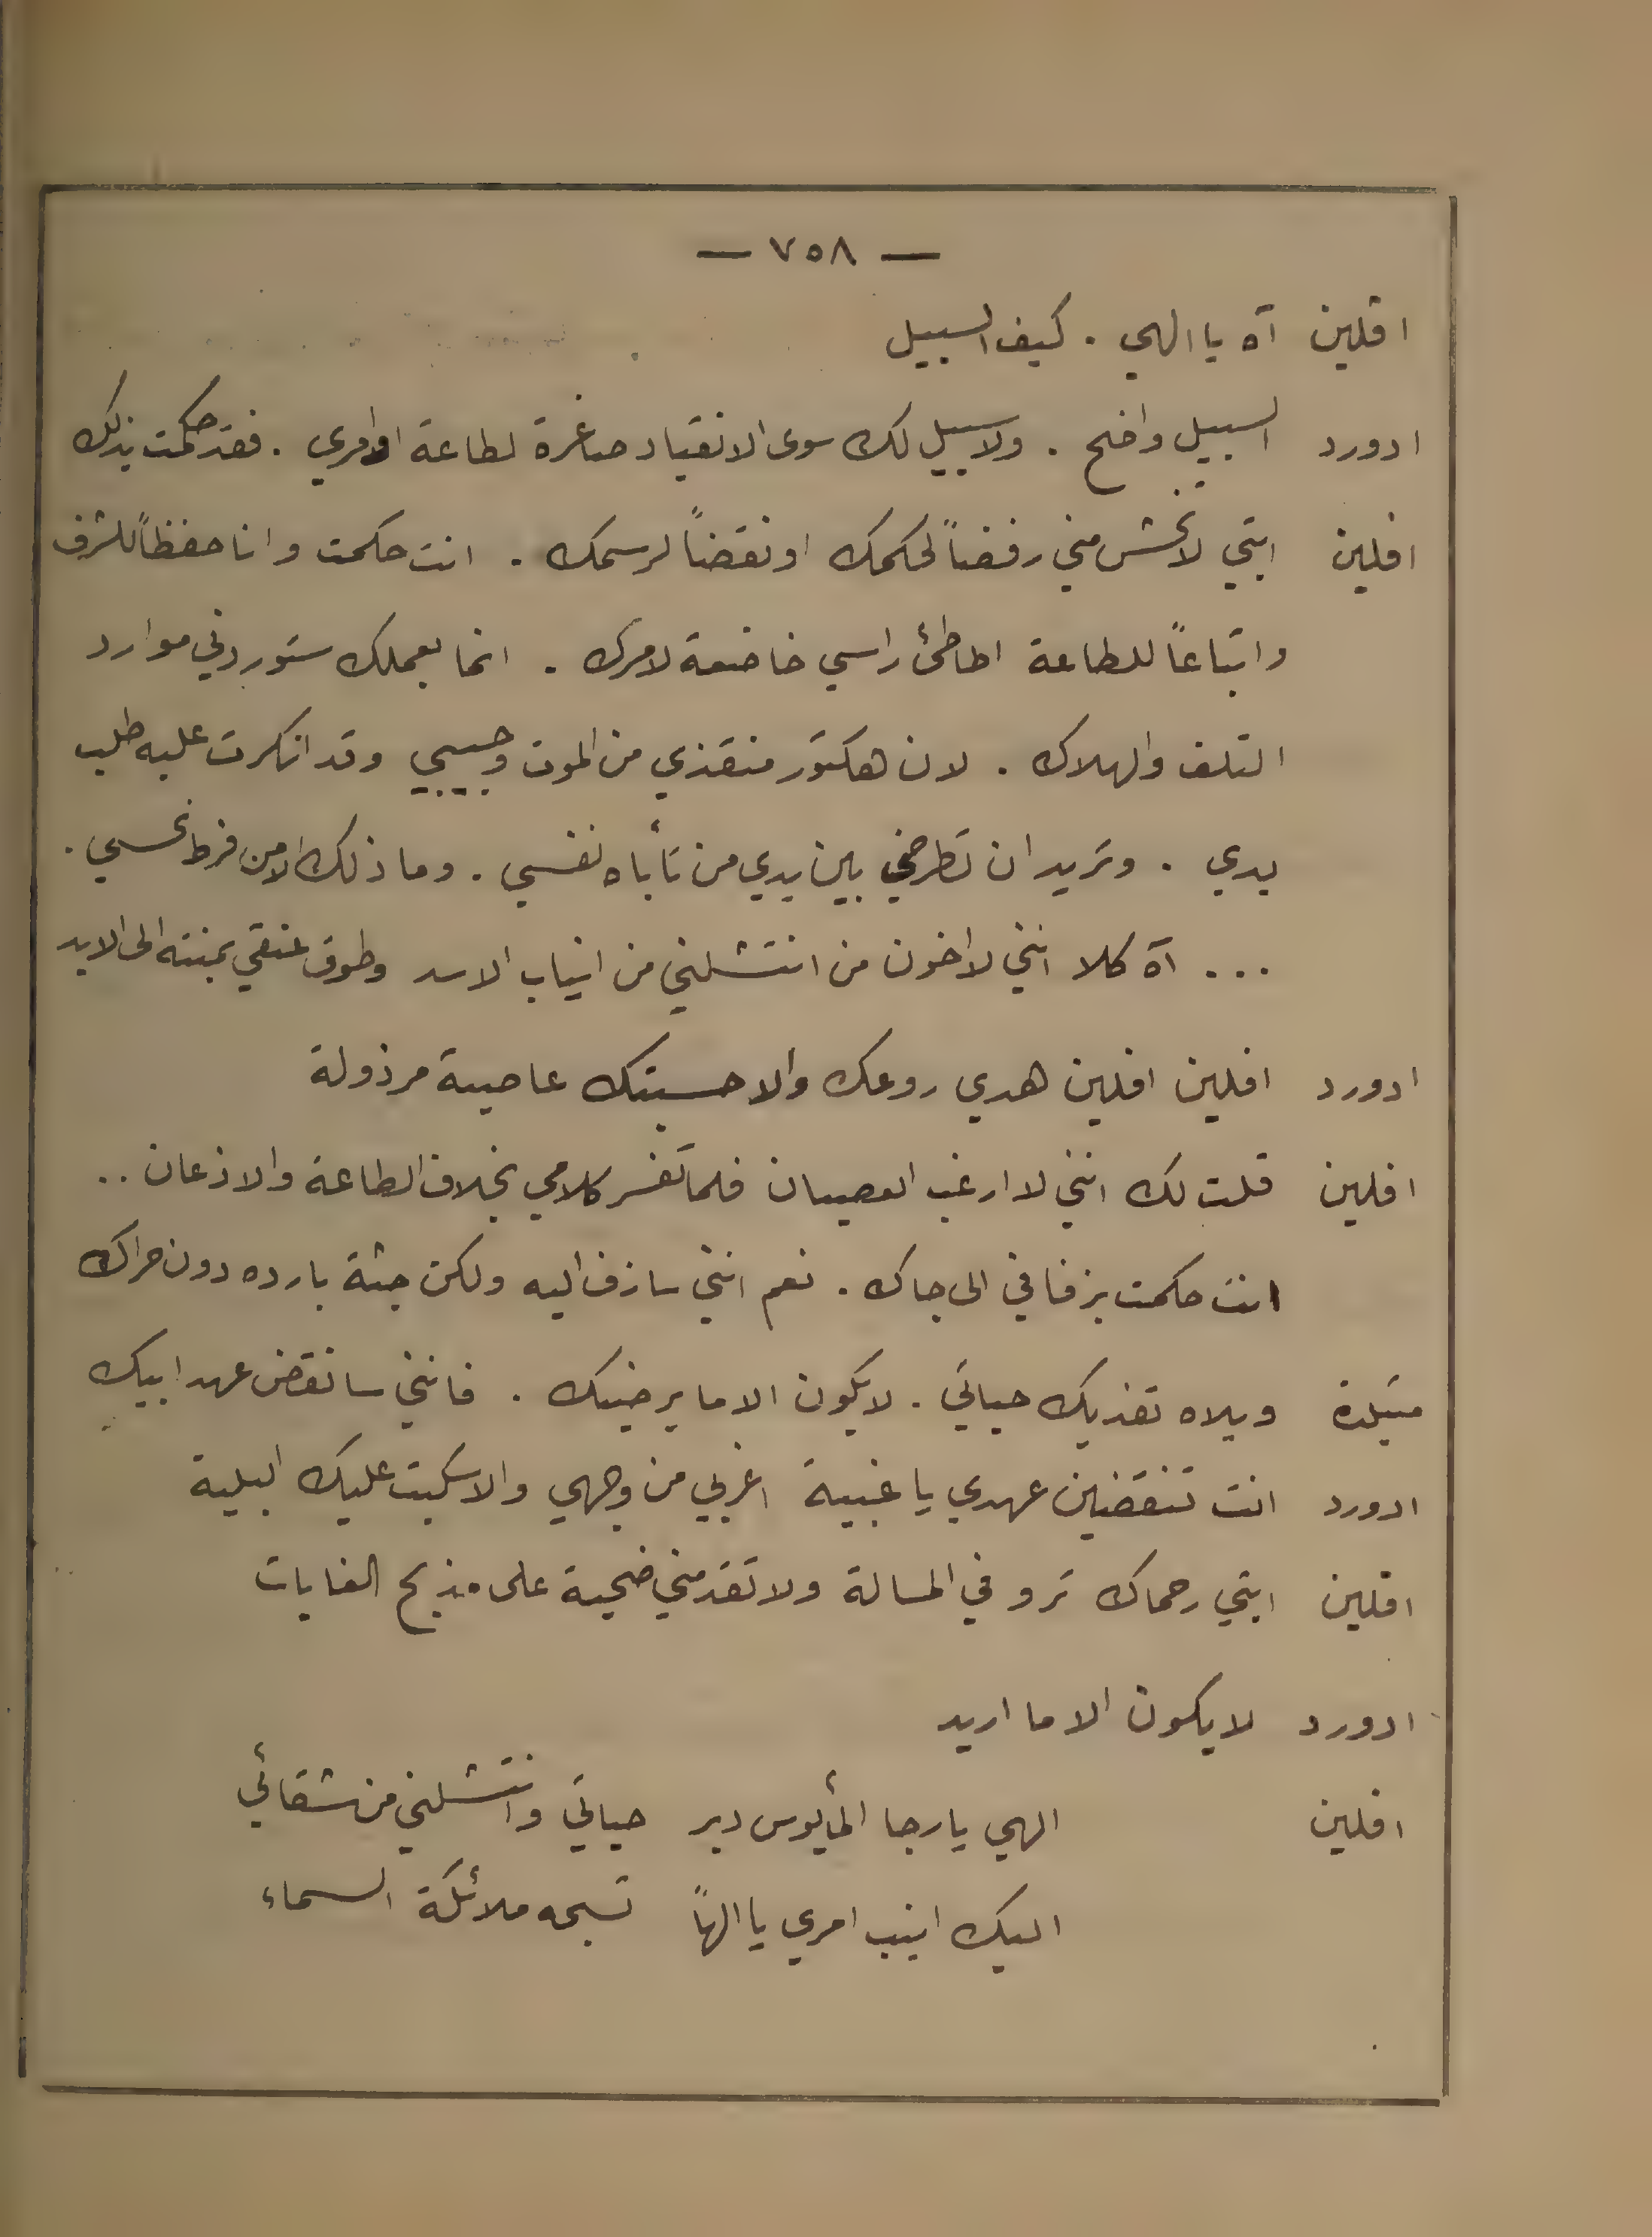 — ٧٥٨ —
افلين آه يا الهي . كيف السبيل
ادورد السبيل واضح . ولا سبيل لك سوى الانقياد صاغرة لطاعة اوامري . فقد حكمت بذلك
افلين ابتي لا تخش مني رفضاً لحكمك او نقضاً لرسمك . انت حكمت وانا حفظاً للشرف
واتباعاً للطاعة اطاطئ راسي خاضعة لامرك . انما بعملك ستوردني موارد
التلف والهلاك . لان هكتور منقذي من الموت وحبيبي وقد انكرت عليه طلب
يدي . وتريد ان تطرحني بين يدي من تأباه نفسي . وما ذلك الا من فرط نحسي .
... آه كلا انني لا اخون من انتشلني من انياب الاسد وطوق عنقي بمنته الى الابد
ادورد افلين افلين هدي روعك والا حسبتك عاصية مرذولة
افلين قلت لك انني لا ارغب العصيان فلما تفسر كلامي بخلاف الطاعة والاذعان ..
انت حكمت بزفافي الى جاك . نعم انني سازف اليه ولكن جثة بارده دون حراك
متيلدة ويلاه تفديك حياتي . لا يكون الا ما يرضيك . فانني سانقض عهد ابيك
ادورد انت تنقضين عهدي يا غبية اغربي من وجهي والا سكبت عليك البلية
افلين ابتي رحماك ترو في المسالة ولا تقدمني ضحية على مذبح الغايات
ادورد لا يكون الا ما اريد
افلين الهي يا رجا المأيوس دبر حياتي وانتشلني من شقائي
اليك انيب امري يا الهاً تسبحه ملائكة السماء